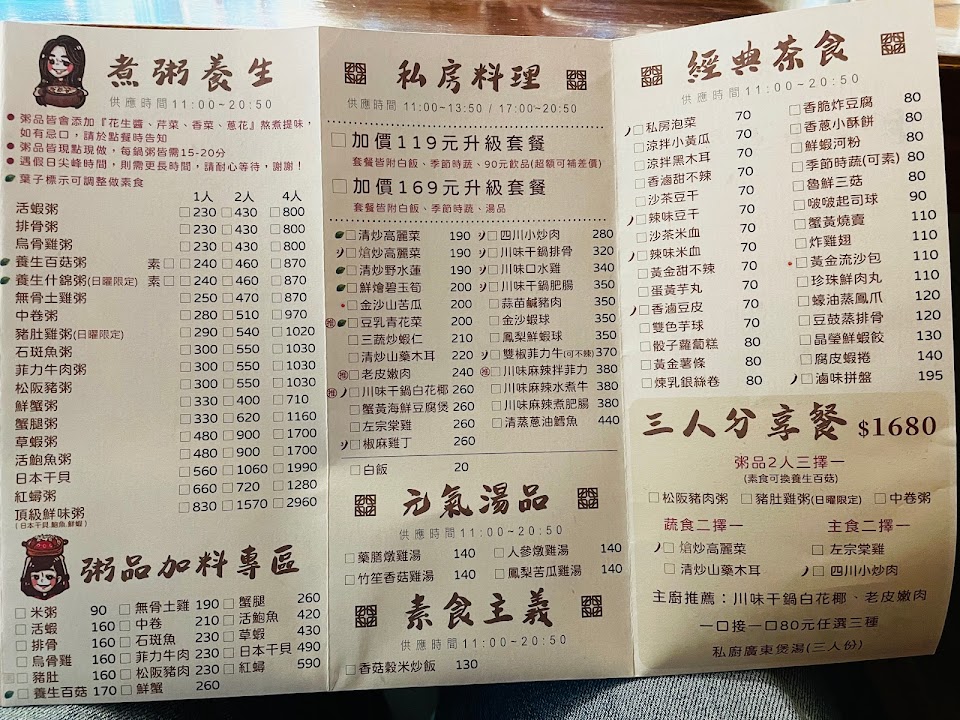 煮粥養生
供應時間11:00~20:50
粥品皆會添加『花生醬、芹菜、香菜、蔥花』熬煮提味，
如有忌口，請於點餐時告知
粥品皆現點現做，每鍋粥皆需15-20分
遇假日尖峰時間，則需更長時間，請耐心等待，謝謝！
葉子標示可調整做素食
1人 2人 4人
活蝦粥 □230 □430 □800
排骨粥 □230 □430 □800
烏骨雞粥 □230 □430 □800
養生百菇粥 素□ □240 □460 □870
養生什錦粥(日曜限定) 素□ □240 □460 □870
無骨土雞粥 □250 □470 □870
中卷粥 □280 □510 □970
豬肚雞粥(日曜限定) □290 □540 □1020
石斑魚粥 □300 □550 □1030
菲力牛肉粥 □300 □550 □1030
松阪豬粥 □300 □550 □1030
鮮蟹粥 □330 □400 □710
蟹腿粥 □330 □620 □1160
草蝦粥 □480 □900 □1700
活鮑魚粥 □480 □900 □1700
日本干貝 □560 □1060 □1990
紅蟳粥 □660 □720 □1280
頂級鮮味粥 □830 □1570 □2960
(日本干貝.鮑魚.鮮蝦)
粥品加料專區
□米粥 90
□活蝦 160
□排骨 160
□烏骨雞 160
□豬肚 160
□養生百菇 170
□無骨土雞 190
□中卷 210
□石斑魚 230
□菲力牛肉 230
□松阪豬肉 230
□鮮蟹 260
□蟹腿 260
□活鮑魚 420
□草蝦 430
□日本干貝 490
□紅蟳 590
私房料理
供應時間 11:00~13:50 / 17:00~20:50
□加價119元升級套餐
套餐皆附白飯、季節時蔬、90元飲品(超額可補差價)
□加價169元升級套餐
套餐皆附白飯、季節時蔬、湯品
□清炒高麗菜 190
□熗炒高麗菜 190
□清炒野水蓮 190
□鮮燴碧玉筍 200
□金沙山苦瓜 200
推 □豆乳青花菜 200
□三蔬炒蝦仁 210
□清炒山藥木耳 220
推 □老皮嫩肉 240
推 □川味干鍋白花椰 260
□蟹黃海鮮豆腐煲 260
□左宗棠雞 260
□椒麻雞丁 260
□四川小炒肉 280
□川味干鍋排骨 320
□川味口水雞 340
□川味干鍋肥腸 350
□蒜苗鹹豬肉 350
□金沙蝦球 350
□鳳梨鮮蝦球 350
□雙椒菲力牛(可不辣) 370
推 □川味麻辣拌菲力 380
□川味麻辣水煮牛 380
□川味麻辣煮肥腸 380
□清蒸蔥油鱈魚 440
□白飯 20
元氣湯品
供應時間 11:00~20:50
□藥膳燉雞湯 140 □人參燉雞湯 140
□竹笙香菇雞湯 140 □鳳梨苦瓜雞湯 140
素食主義
供應時間 11:00~20:50
□香菇穀米炒飯 130
經典茶食
供應時間 11:00~20:50
□私房泡菜 70
□涼拌小黃瓜 70
□涼拌黑木耳 70
□香滷甜不辣 70
□沙茶豆干 70
□辣味豆干 70
□沙茶米血 70
□辣味米血 70
□黃金甜不辣 70
□蛋黃芋丸 70
□香滷豆皮 70
□雙色芋球 70
□骰子蘿蔔糕 80
□黃金薯條 80
□煉乳銀絲卷 80
□香脆炸豆腐 80
□香蔥小酥餅 80
□鮮蝦河粉 80
□季節時蔬(可素) 80
□魯鮮三菇 80
□啵啵起司球 90
□蟹黃燒賣 110
□炸雞翅 110
□黃金流沙包 110
□珍珠鮮肉丸 110
□蠔油蒸鳳爪 120
□豆鼓蒸排骨 120
□晶瑩鮮蝦餃 130
□腐皮蝦捲 140
□滷味拼盤 195
三人分享餐 $1680
粥品2人三擇一
(素食可換養生百菇)
□松阪豬肉粥 □豬肚雞粥(日曜限定) □中卷粥
蔬食二擇一 主食二擇一
□熗炒高麗菜 □左宗棠雞
□清炒山藥木耳 □四川小炒肉
主廚推薦：川味干鍋白花椰、老皮嫩肉
一口接一口80元任選三種
私廚廣東煲湯(三人份)